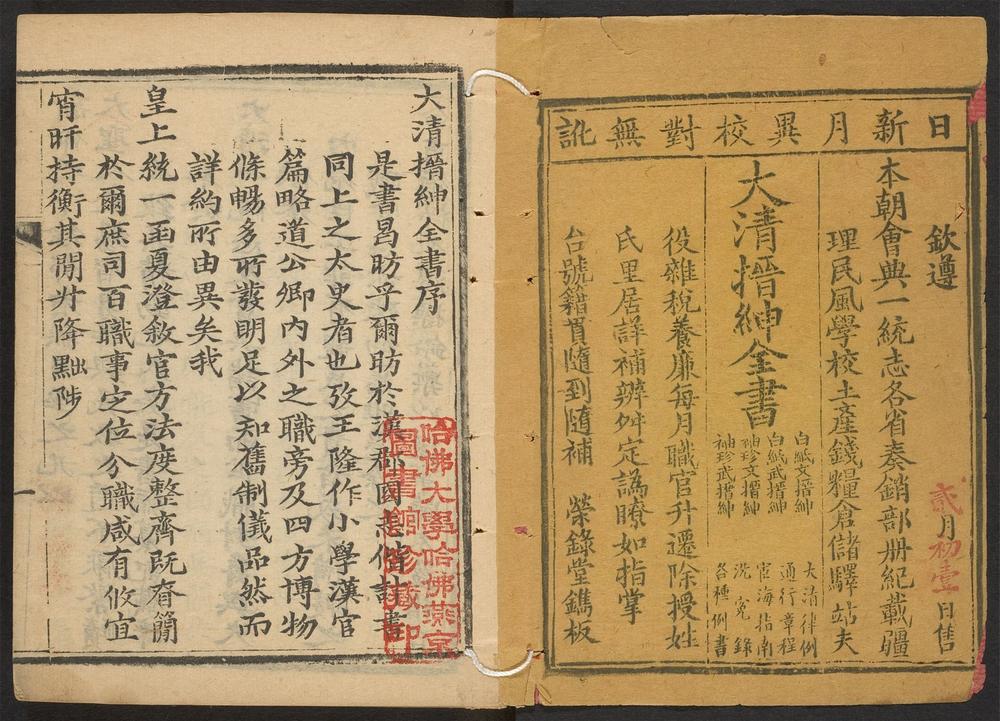 日新月異校對無訛
欽遵
貳月初壹日售
本朝會典一統志各省奏銷部册紀載疆
理民風學校土產錢糧倉儲驛站夫
大清搢紳全書
白紙文搢紳
白紙武搢紳
袖珍文搢紳
袖珍武搢紳
大清律例
通行章程
宦海指南
洗冤錄
各種例書
役雜稅養廉每月職官升遷除授姓
氏里居詳補辨舛定譌瞭如指掌
台號籍貫隨到隨補
榮錄堂鐫板
大清搢紳全書序
是書昌昉乎爾昉於漢郡國悉偕計書
同上之太史者也攷王隆作小學漢官
篇略道公卿內外之職旁及四方博物
條暢多所發明足以知舊制儀品然而
詳約所由異矣我
皇上統一函夏澄敘官方法度整齊既眘簡
於爾庶司百職事定位分職咸有攸宜
宵旰持衡其閒升降黜陟
哈佛大學哈佛燕京
圖書館珍藏印